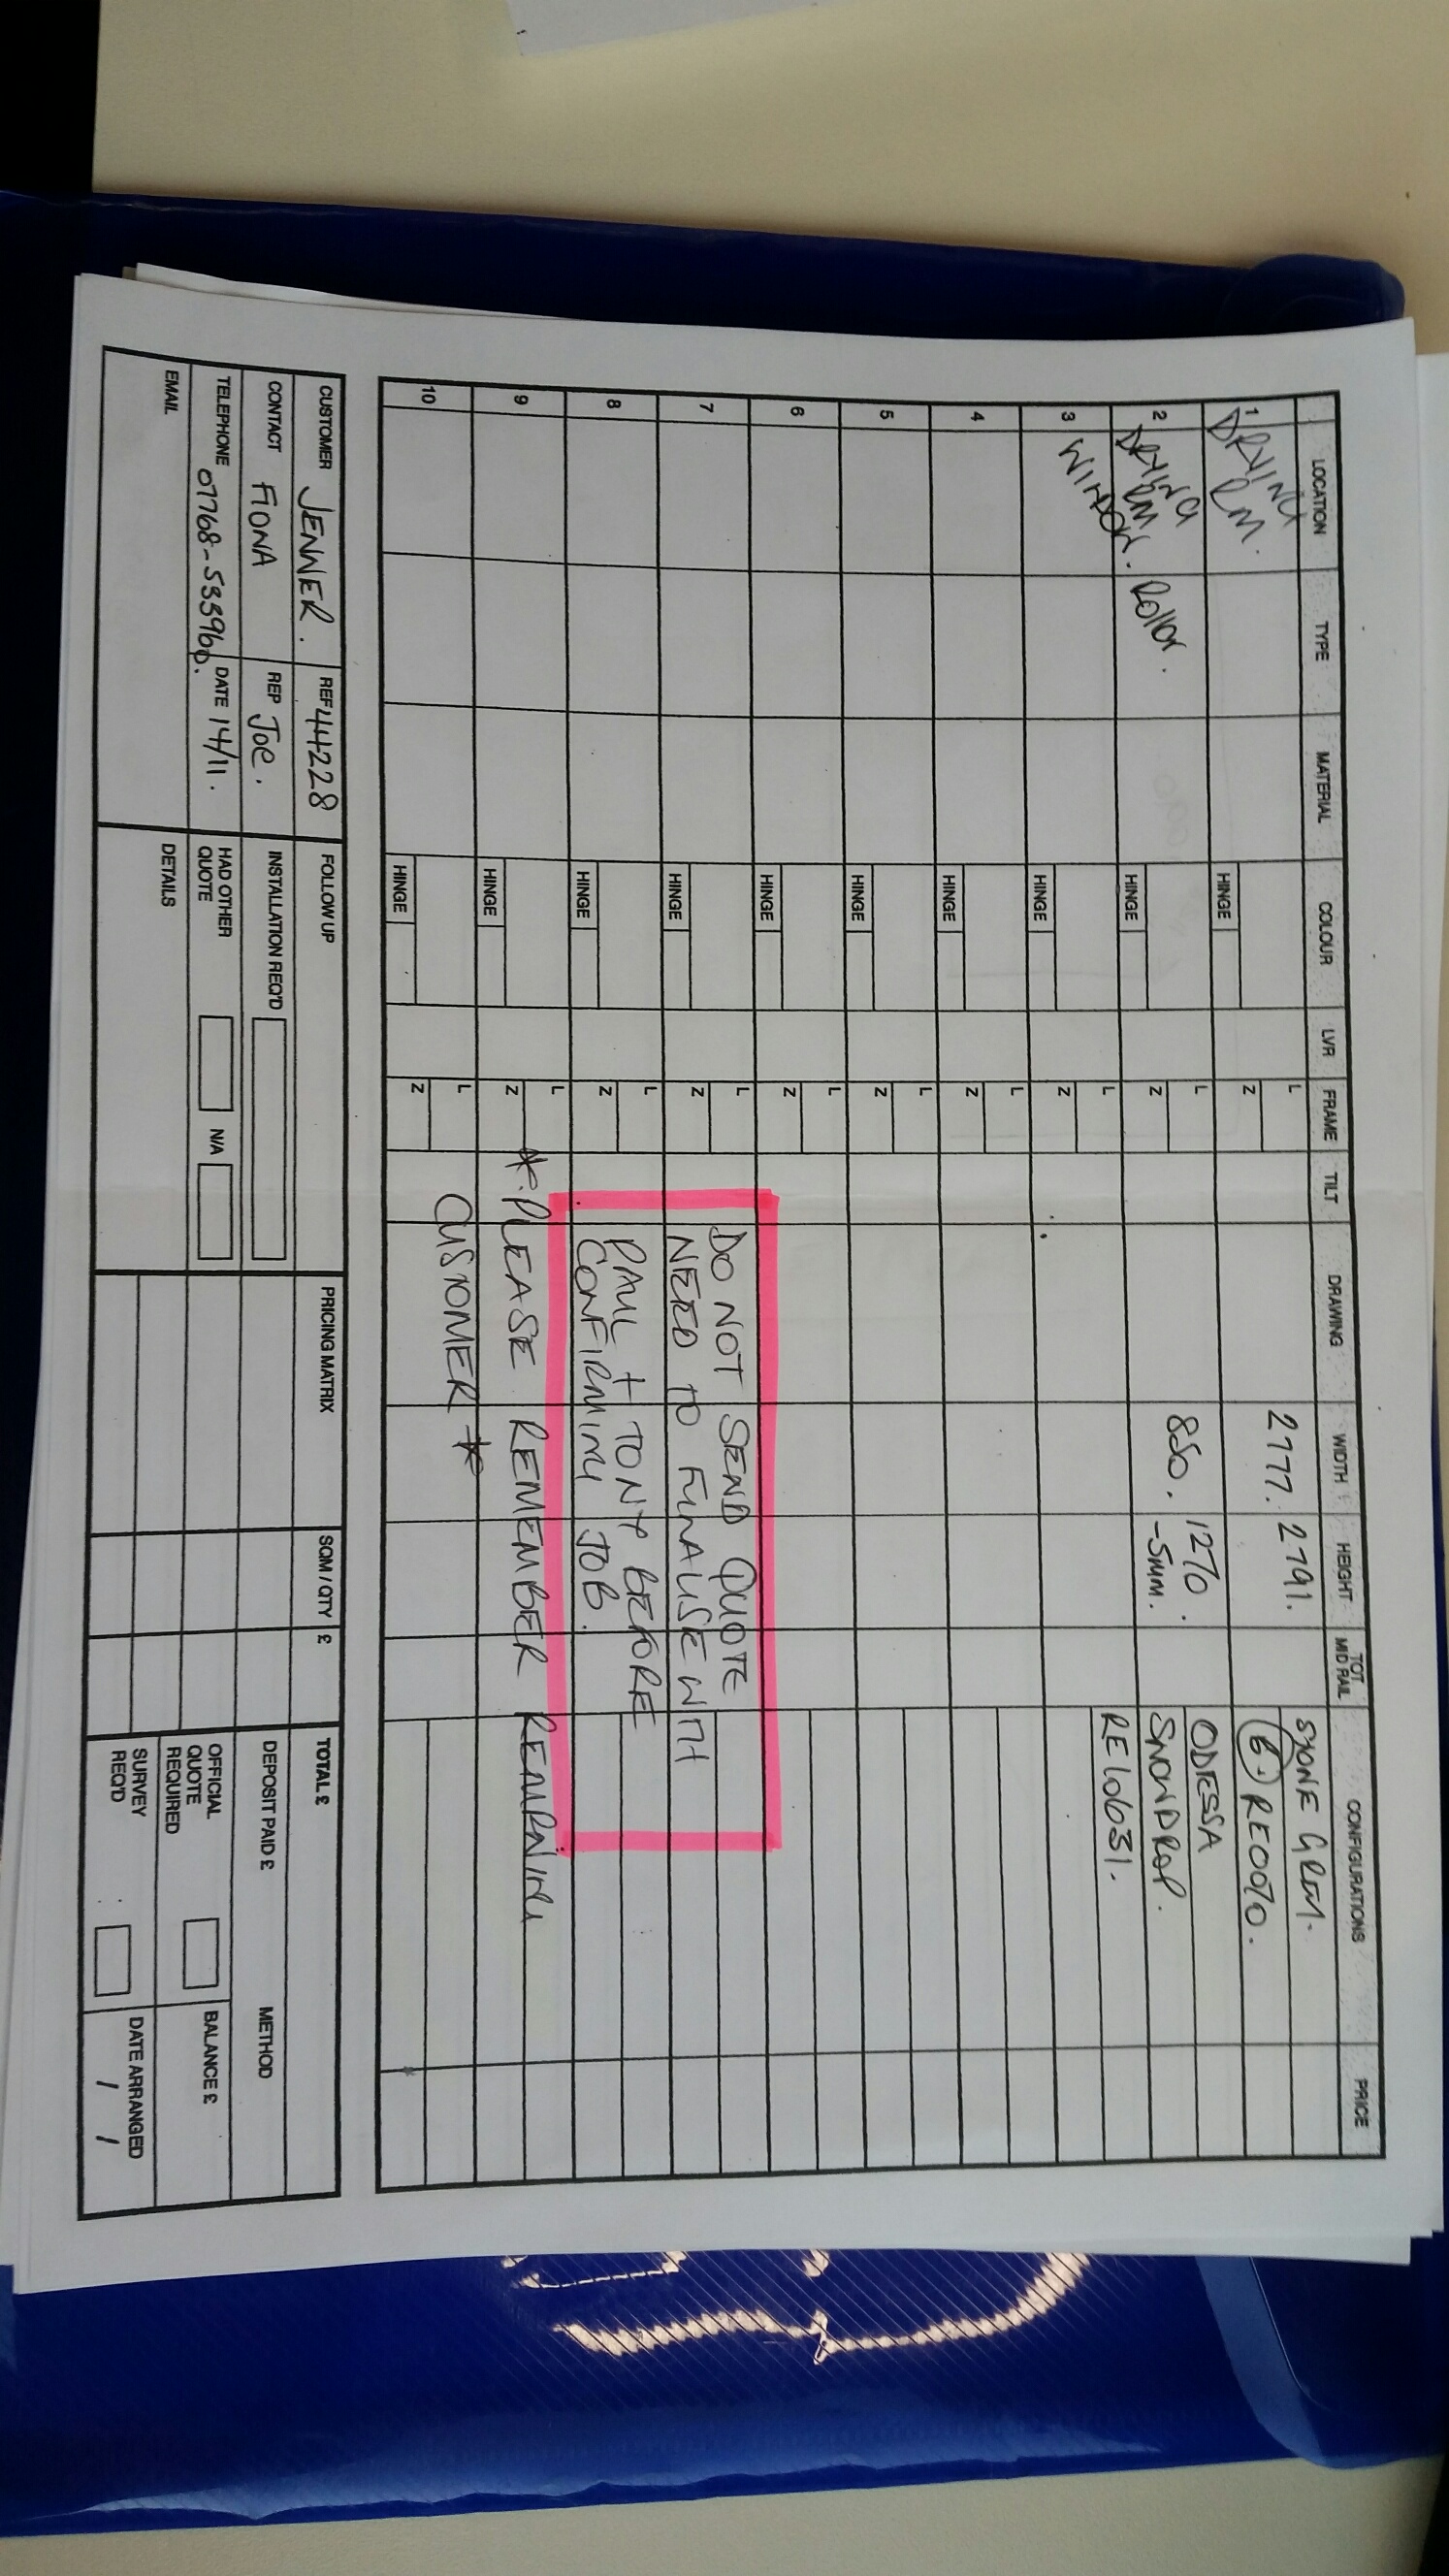 LOCATION TYPE MATERIAL COLOUR LVR FRAME TILT DRAWING WIDTH HEIGHT TOT MID RAIL CONFIGURATIONS PRICE
1 DRYING RM. HINGE L Z 2777. 2791. STONE GREY.
6. RE0070.
2 DRYING RM WINDOW. Roller. HINGE L Z 880. 1270. ODESSA
-5mm. SNOWDROP.
3 HINGE L Z RE10631.
4 HINGE L Z
5 HINGE L Z
6 HINGE L Z
7 HINGE L Z DO NOT SEND QUOTE
NEED TO FINALISE WITH
8 HINGE L Z PAUL + TONY BEFORE
CONFIRMING JOB.
9 HINGE L Z *PLEASE REMEMBER REMAINING
10 HINGE L Z CUSTOMER *
CUSTOMER JENNER. REF 44228 FOLLOW UP PRICING MATRIX SQM / QTY £ TOTAL £
CONTACT FIONA REP Joe. INSTALLATION REQ'D DEPOSIT PAID £ METHOD
TELEPHONE 07768-533960. DATE 14/11. HAD OTHER QUOTE N/A OFFICIAL QUOTE REQUIRED BALANCE £
EMAIL DETAILS SURVEY REQ'D DATE ARRANGED / /